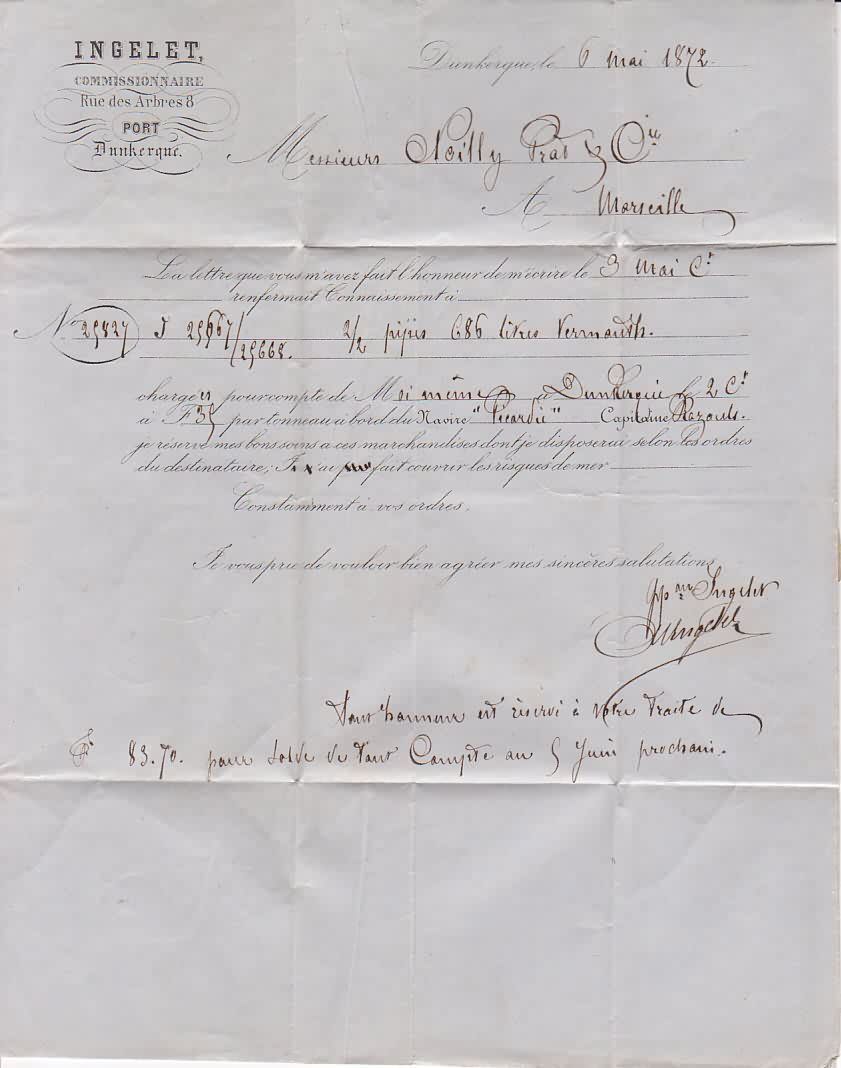 INGELET,
COMMISSIONNAIRE
Rue des Arbres 8
PORT
Dunkerque.
Dunkerque, le 6 Mai 1872.
Messieurs Noilly Prat & Cie
A Marseille
La lettre que vous m'avez fait l'honneur de m'écrire le 3 Mai Ct
renfermait Connaissement à
No 25827 J 25667/25668. 2/2 pipes 686 litres Vermouth.
chargés pour compte de Moi même à Dunkerque le 2 Ct
à F. 35 par tonneau à bord du Navire "Picardie" Capitaine
je réserve mes bons soins a ces marchandises dont je disposerai selon les ordres
du destinataire; fait couvrir les risques de mer
Constamment à vos ordres.
Je vous prie de vouloir bien agréer mes sincères salutations
Ingelet
Tout honneur est réservé à votre traite de
F 83.70. pour solde de tout Compte au 5 Juin prochain.